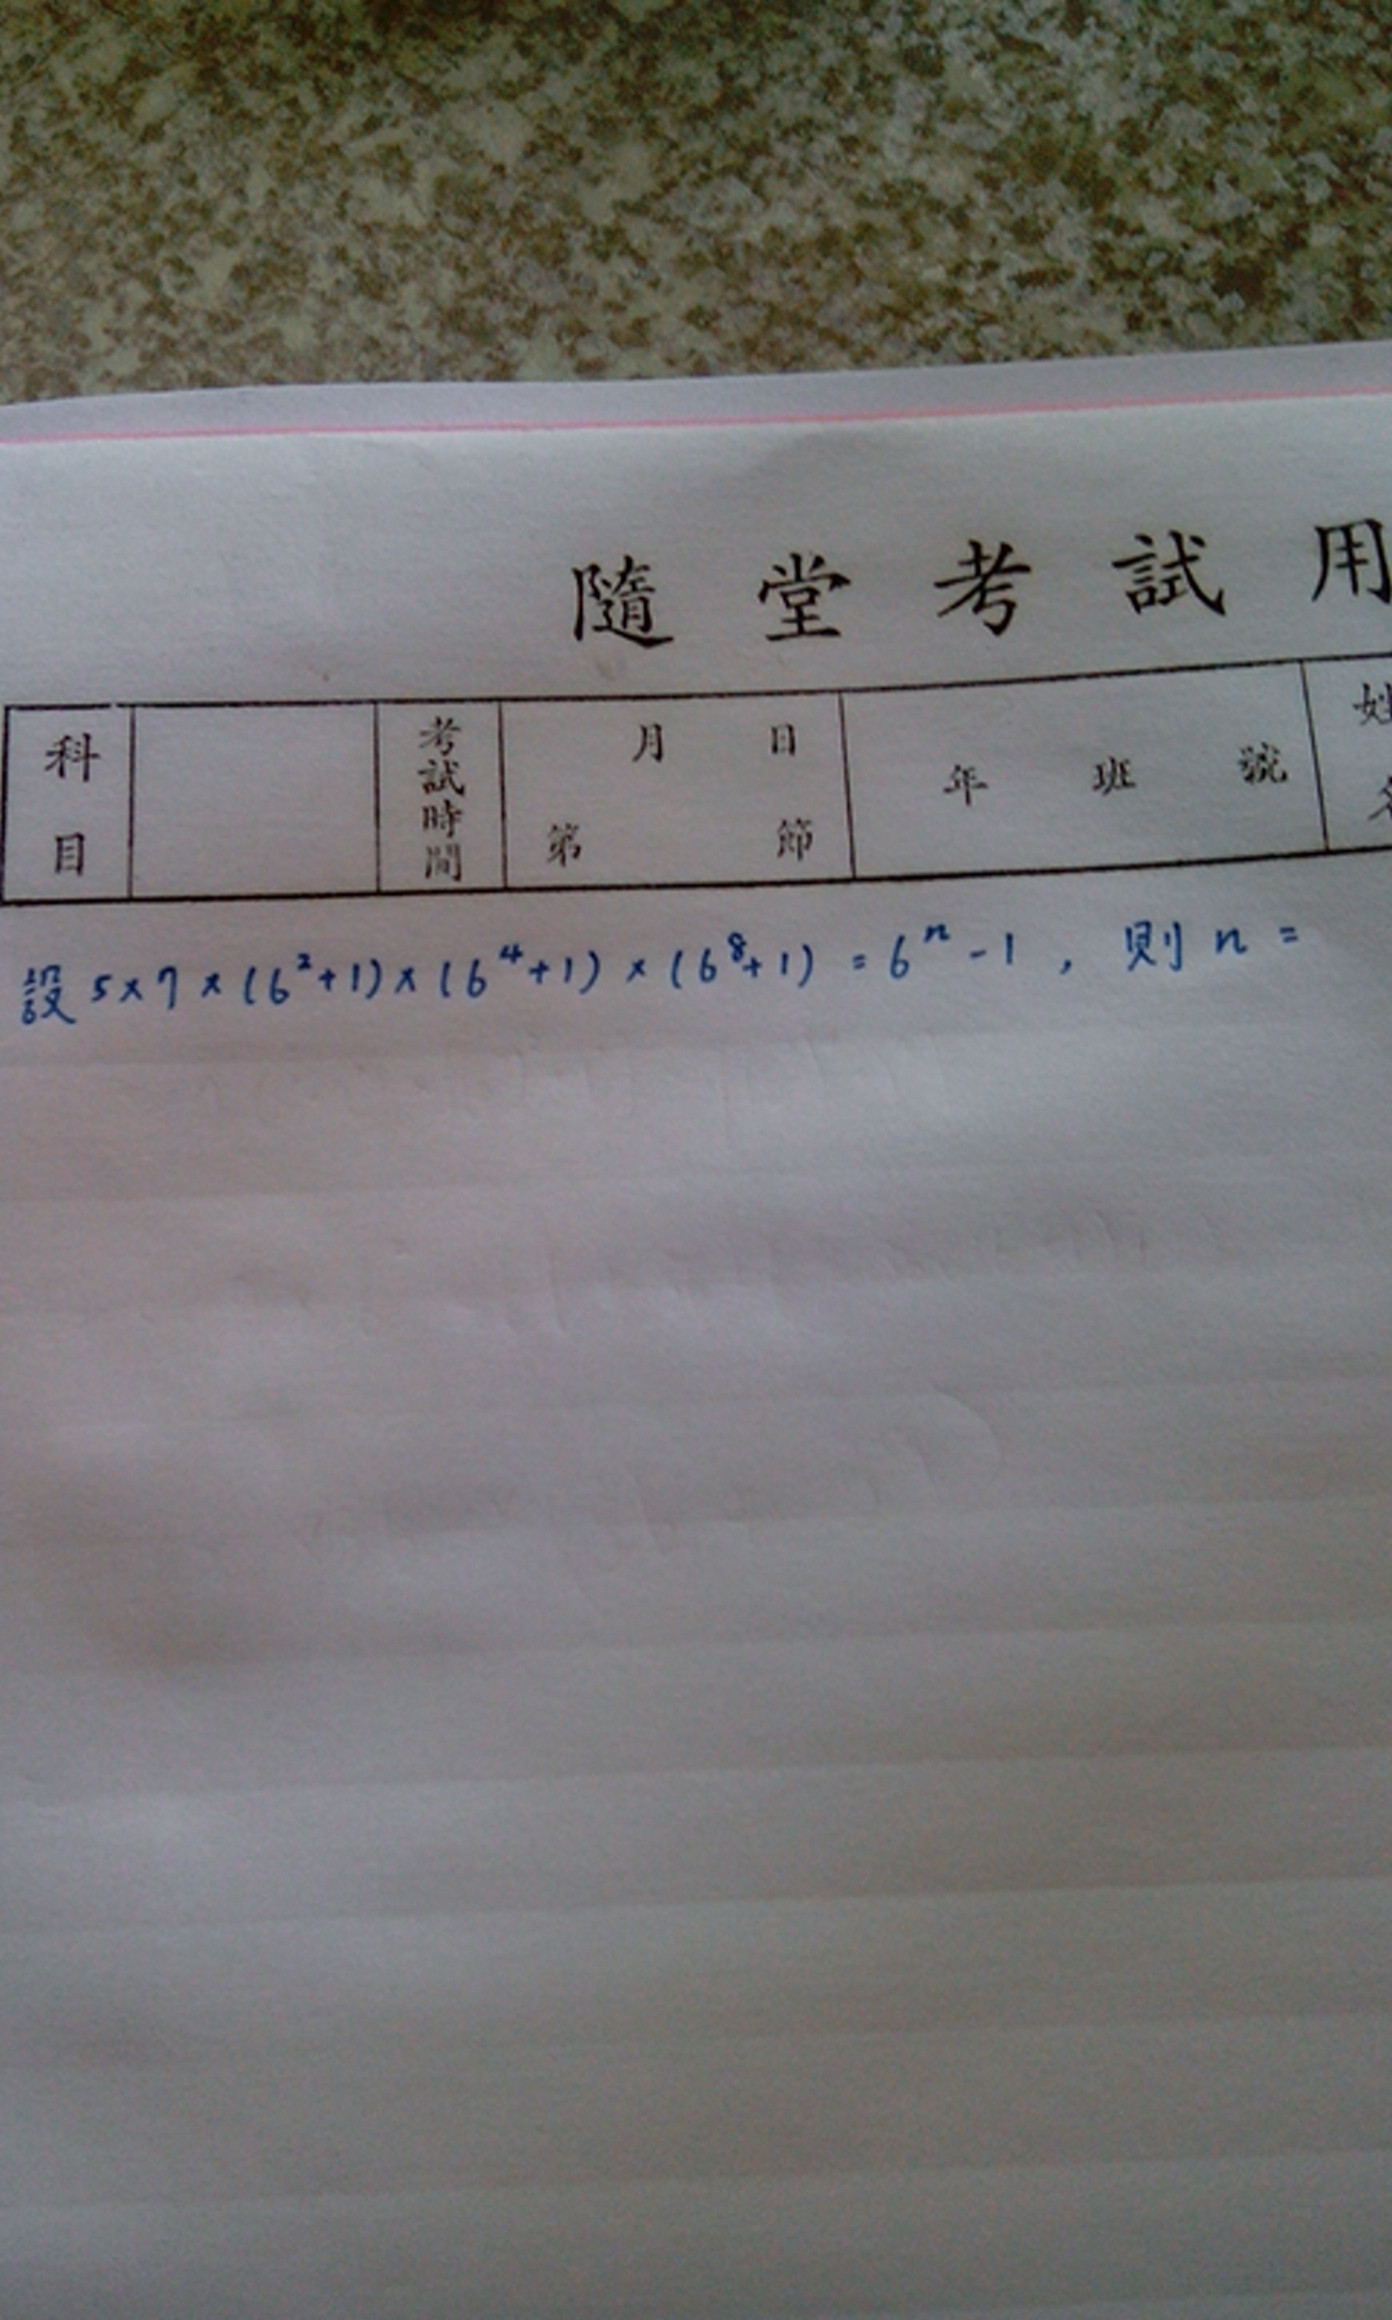 隨堂考試用
科目 考試時間 月 日 第 節 年 班 號 姓
設 5×7×(6²+1)×(6⁴+1)×(6⁸+1) = 6ⁿ-1 , 則 n =